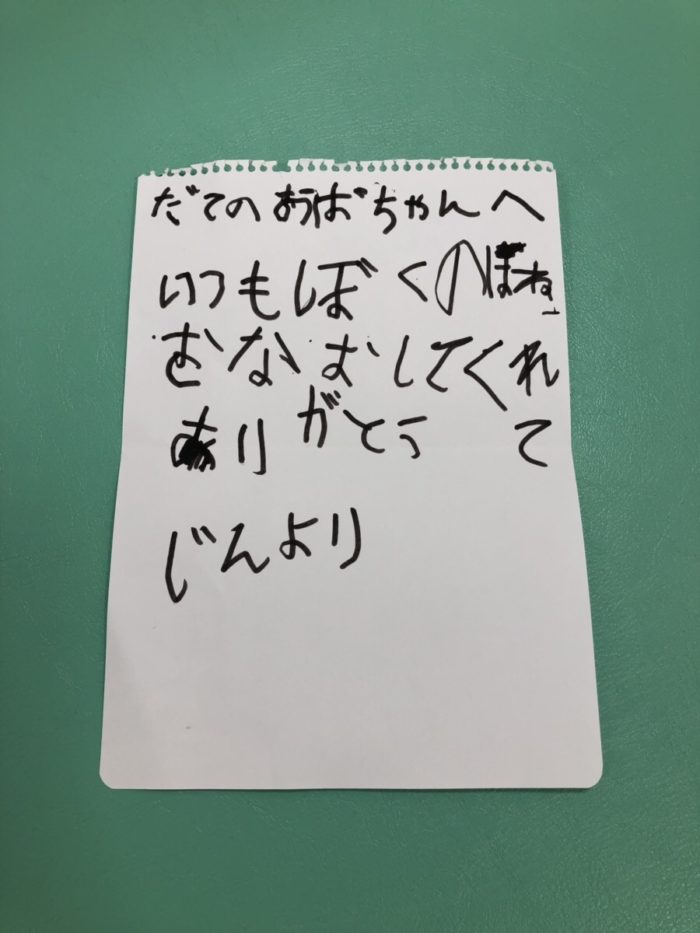 だてのおばちゃんへ
いつもぼくのほね
むなおしてくれ
ありがとうて
じんより